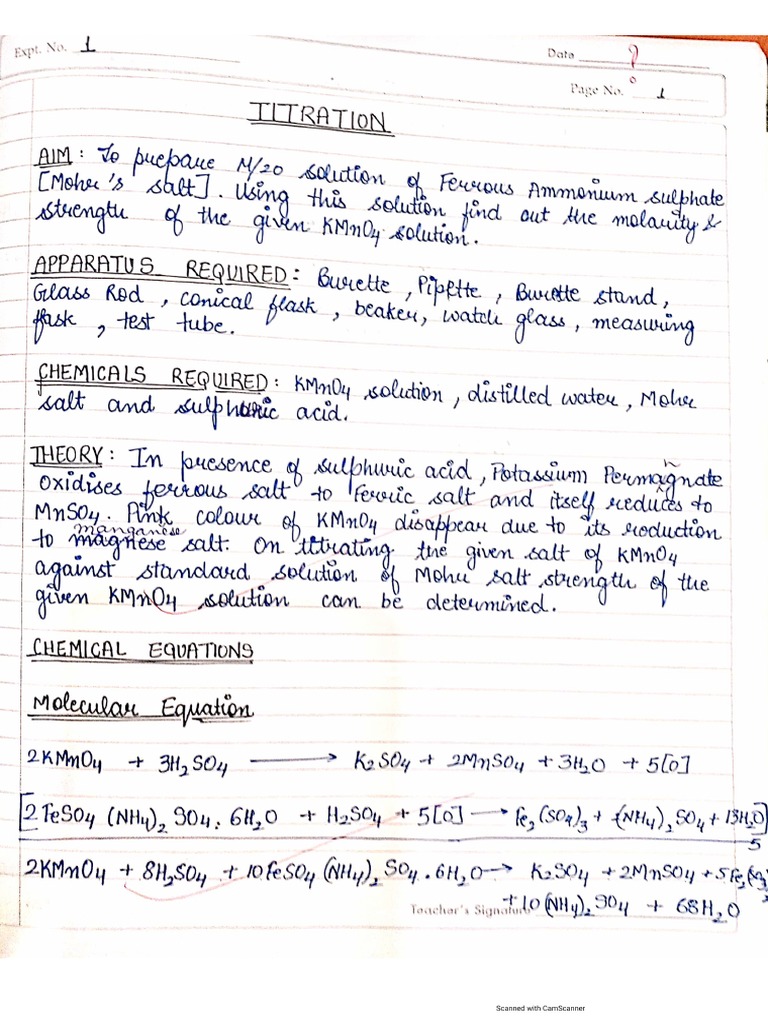 Expt. No. 1
Date ?
Page No. 1
TITRATION
AIM : To prepare M/20 solution of Ferrous Ammonium sulphate
[Mohr's salt]. Using this solution find out the molarity &
strength of the given KMnO4 solution.
APPARATUS REQUIRED : Burette, Pipette, Burette stand,
Glass Rod, conical flask, beaker, watch glass, measuring
flask, test tube.
CHEMICALS REQUIRED : KMnO4 solution, distilled water, Mohr
salt and sulphuric acid.
THEORY : In presence of sulphuric acid, Potassium Permagnate
n
oxidises ferrous salt to ferric salt and itself reduces to
MnSO4. Pink colour of KMnO4 disappear due to its reduction
manganese
to magnese salt. On titrating the given salt of KMnO4
against standard solution of Mohr salt strength of the
given KMnO4 solution can be determined.
CHEMICAL EQUATIONS
Molecular Equation
2KMnO4 + 3H2SO4 ⟶ K2SO4 + 2MnSO4 + 3H2O + 5[O]
[2FeSO4 (NH4)2 SO4. 6H2O + H2SO4 + 5[O] → Fe2(SO4)3 + (NH4)2 SO4 + 13H2O]
5
2KMnO4 + 8H2SO4 + 10FeSO4(NH4)2 SO4 . 6H2O → K2SO4 + 2MnSO4 + 5Fe2(SO4)3
+ 10(NH4)2 SO4 + 68H2O
Teacher's Signature
Scanned with CamScanner